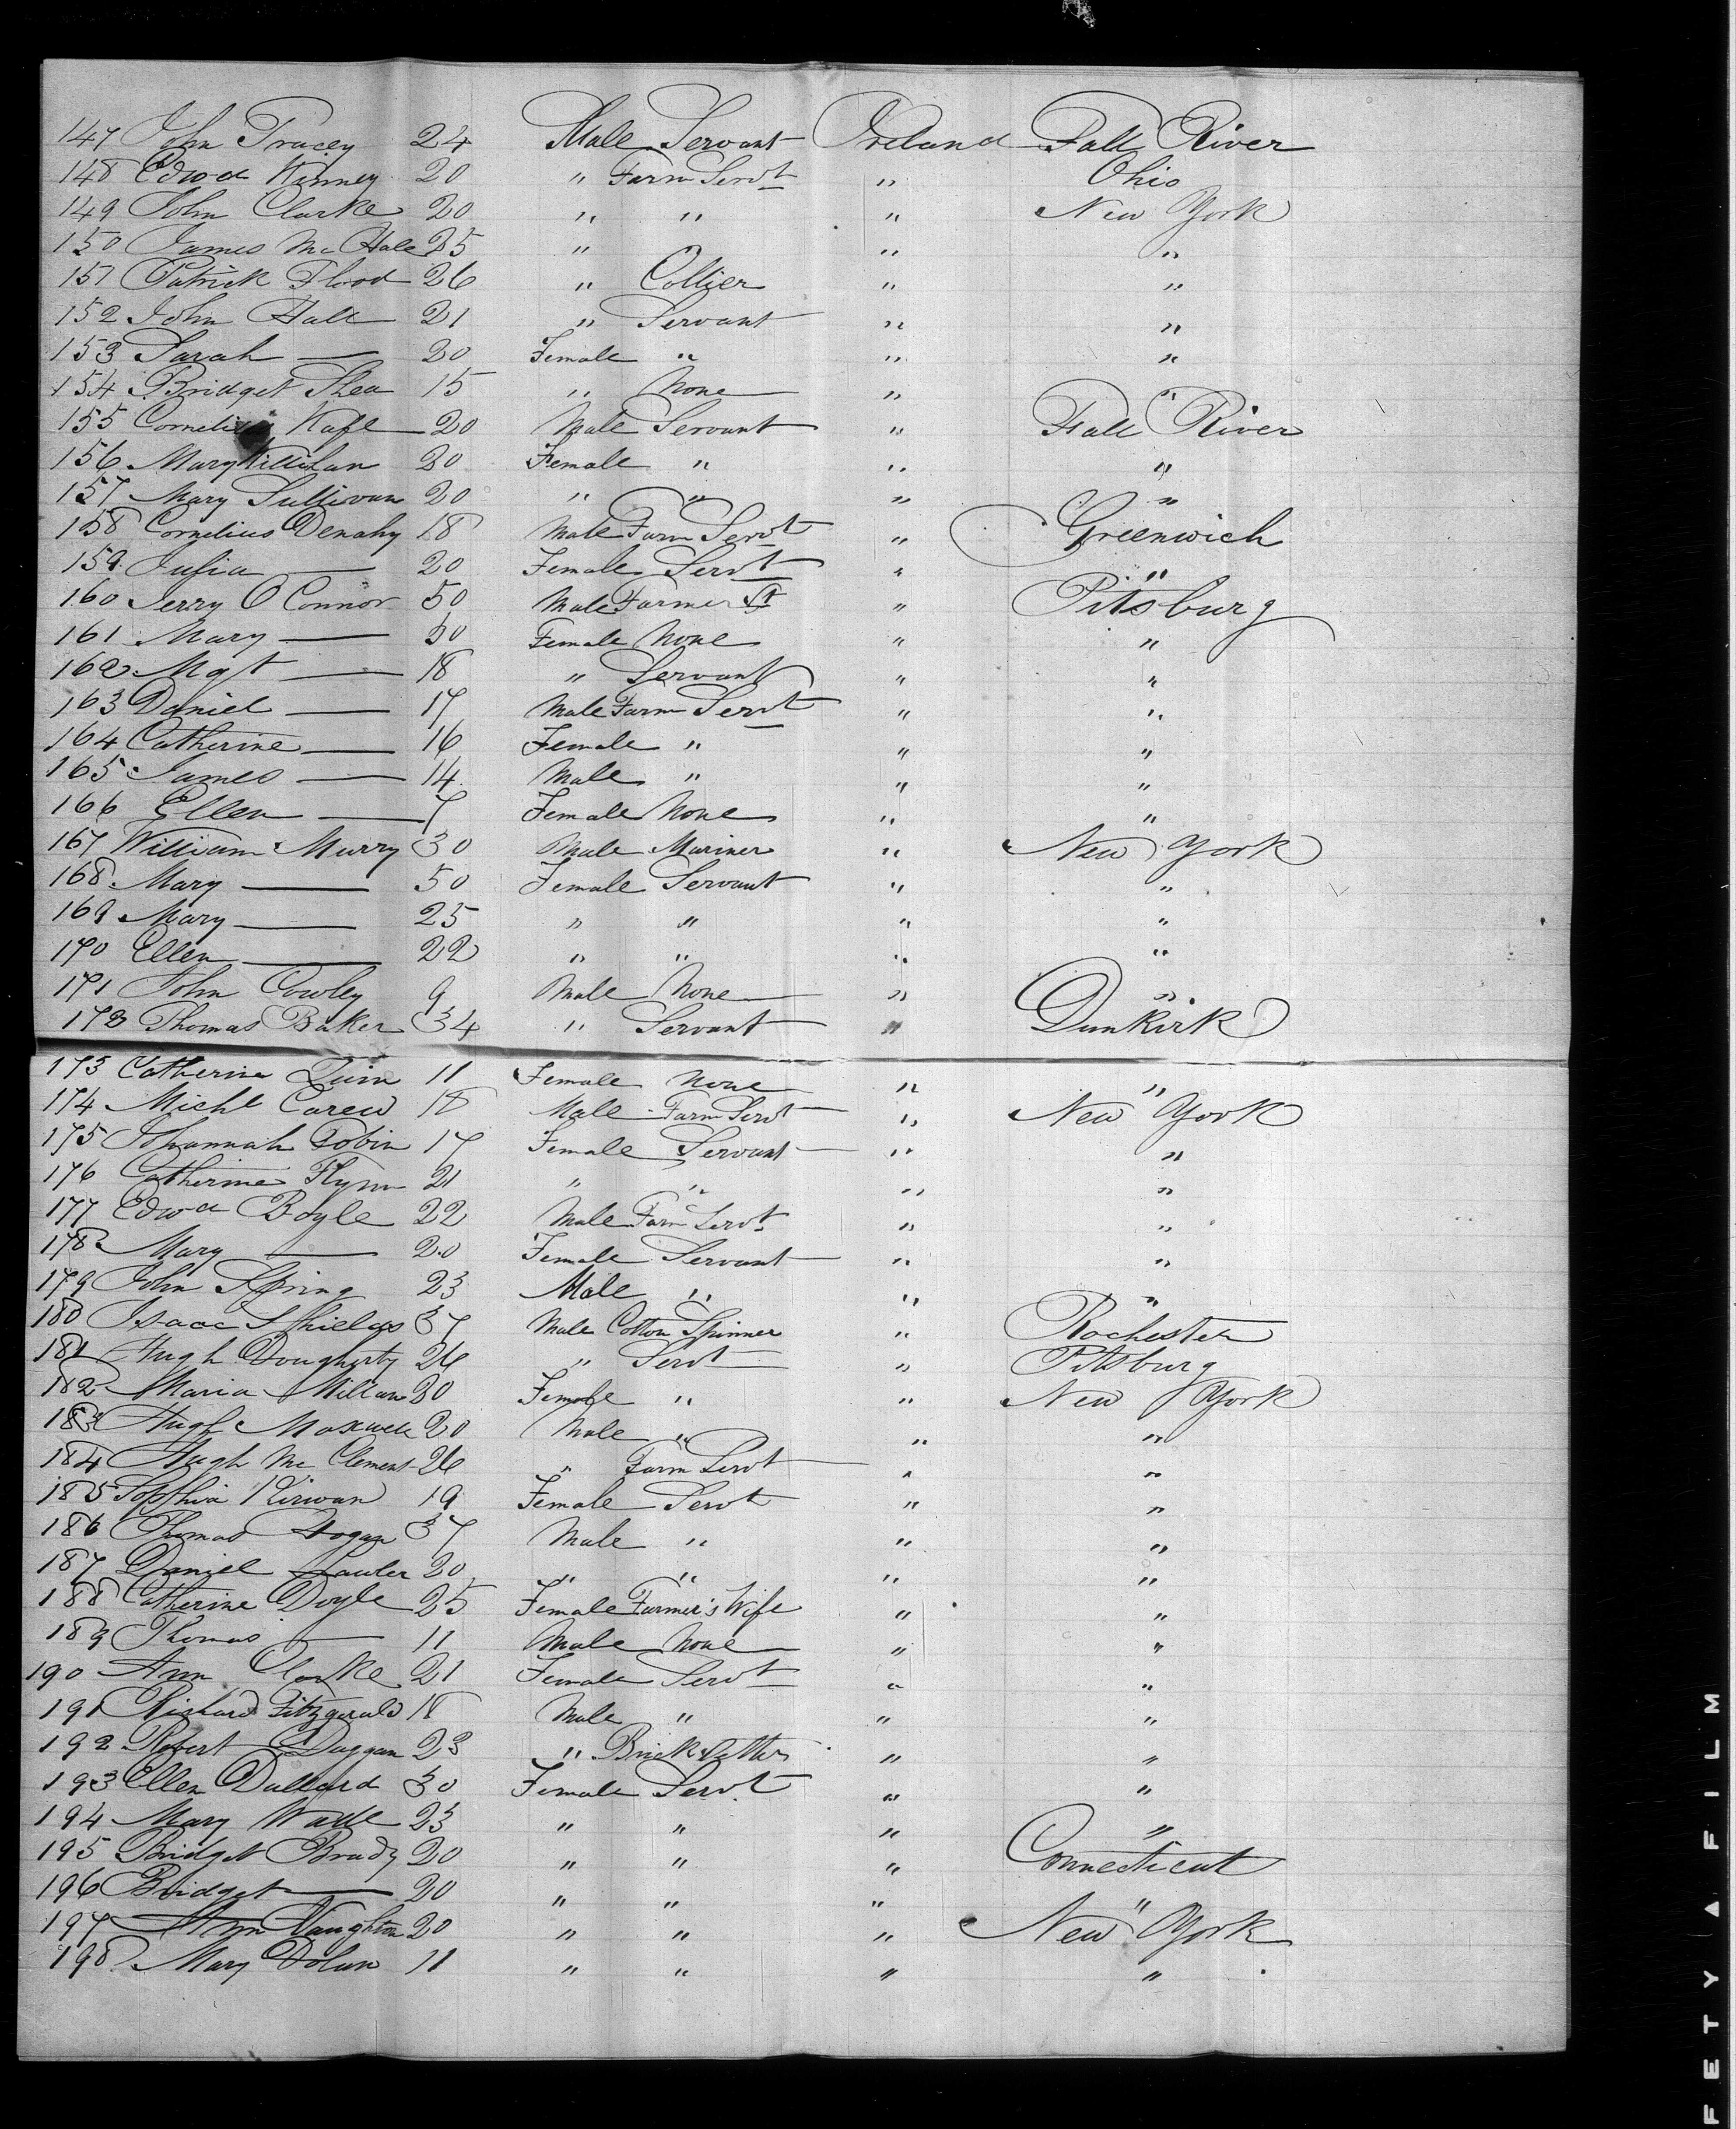 147 John Tracey 24 Male Servant Ireland Fall River
148 Edwd Kinney 20 " Farm Servt " Ohio
149 John Clarke 20 " " " New York
150 James McHale 25 " " "
151 Patrick Flood 26 " Collier " "
152 John Hall 21 " Servant " "
153 Sarah — 20 Female " " "
154 Bridget Shea 15 " None " "
155 Cornelius 20 Male Servant " Fall River
156 Mary 20 Female " " "
157 Mary Sullivan 20 " " " "
158 Cornelius Denahy 18 Male Farm Servt " Greenwich
159 — 20 Female Servt " "
160 Jerry O Connor 50 Male Farmer " Pitsburg
161 Mary — 50 Female None " "
162 Mgt — 18 " Servant " "
163 Daniel — 17 Male Farm Servt " "
164 Catherine — 16 Female " " "
165 James — 14 Male " " "
166 Ellen — 7 Female None " "
167 William Murry 30 Male Mariner " New York
168 Mary — 50 Female Servant " "
169 Mary — 25 " " " "
170 Ellen — 22 " " " "
171 John Cowley 9 Male None " "
172 Thomas Baker 34 " Servant " Dunkirk
173 Catherine Quin 11 Female None " "
174 Michl Carew 18 Male Farm Servt " New York
175 Johannah Tobin 17 Female Servant " "
176 Catherine Flynn 21 " " " "
177 Edwd Boyle 22 Male Farm Servt " "
178 Mary — 20 Female Servant " "
179 John Spring 23 Male " " "
180 Isaac Shields 37 Male Cotton Spinner " Rochester
181 Hugh Dougherty 26 " Servt " Pitsburg
182 Maria Millan 20 Female " " New York
183 Hugh Maxwell 20 Male " " "
184 Hugh Mc Clement 26 " Farm Servt " "
185 Sopthia Kirwan 19 Female Servt " "
186 Thomas Hogan 37 Male " " "
187 Daniel Lawler 20 " " " "
188 Catherine Doyle 25 Female Farmer's Wife " "
189 Thomas — 11 Male None " "
190 Ann Clarke 21 Female Servt " "
191 Richard Fitzgerald 18 Male " " "
192 Robert Duggan 23 " Brick " "
193 Ellen Dullard 30 Female Servt. " "
194 Mary Wade 23 " " " "
195 Bridget Brady 20 " " " Connecticut
196 Bridget — 20 " " " "
197 Ann Naughton 20 " " " New York
198 Mary Dolan 11 " " " "
FETY ▲ FILM